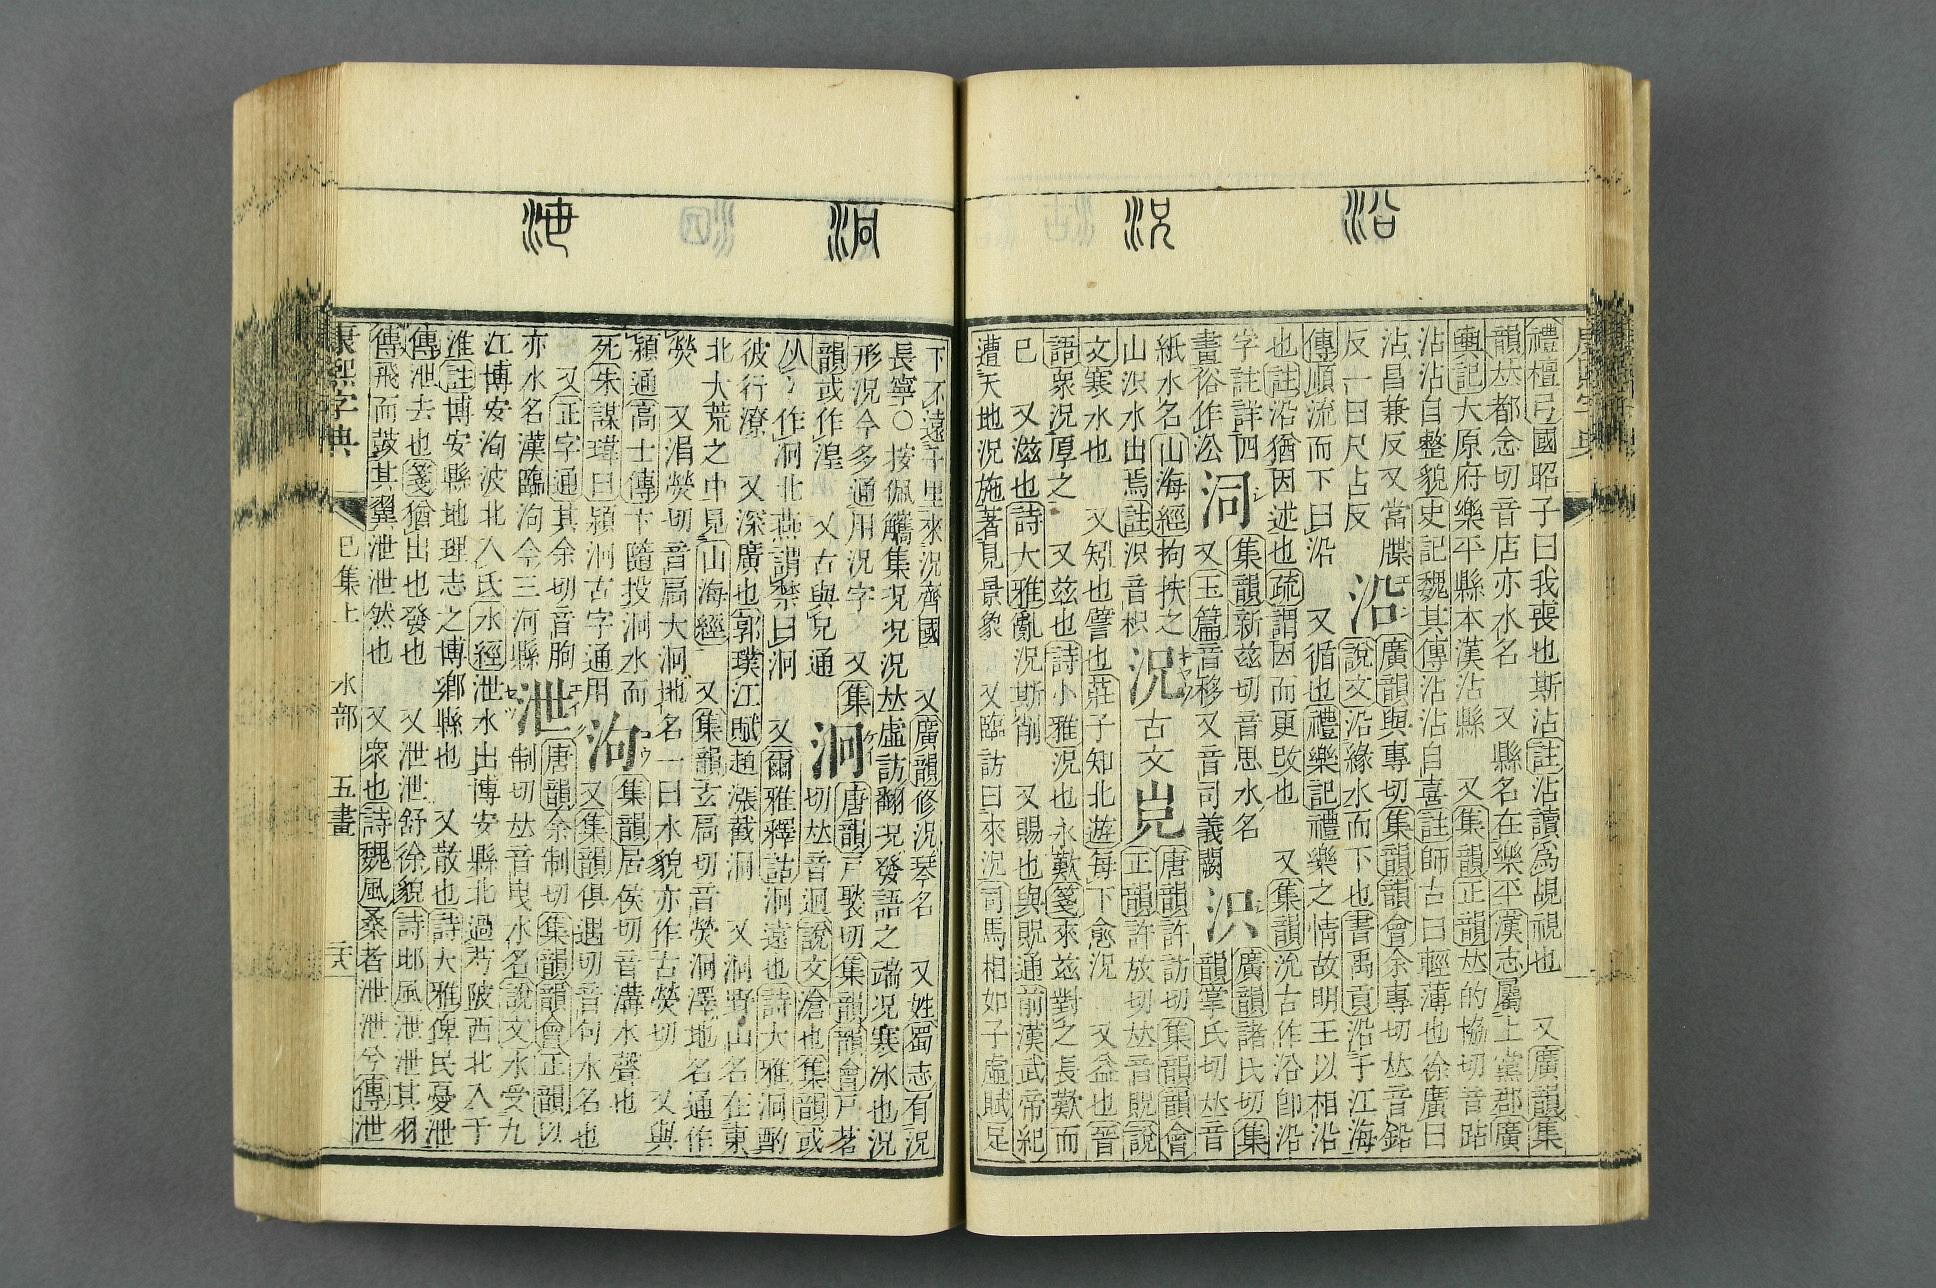 沿
況
泂
泄
禮檀弓國昭子曰我喪也斯沾註沾讀為覘視也 又廣韻集
韻𠀤都念切音店亦水名 又縣名在樂平漢志屬上黨郡廣
輿記大原府樂平縣本漢沾縣 又集韻正韻𠀤的協切音跕
沾沾自整貌史記魏其傳沾沾自喜註師古曰輕薄也徐廣曰
沾昌兼反又當牒
反一曰尺占反
沿
廣韻與專切集韻韻會余專切𠀤音鉛
說文沿緣水而下也書禹貢沿于江海
傳順流而下曰沿 又循也禮樂記禮樂之情故明王以相沿
也註沿猶因述也疏謂因而更改也 又集韻沇古作沿卽沿
字註詳四
畫俗作㳂
泀
集韻新兹切音思水名
又玉篇音移又音司義闕
廣韻諸氏切集
韻掌氏切𠀤音
紙水名山海經拘扶之
山水出焉註音枳
況 古文
唐韻許訪切集韻韻會
正韻許放切𠀤音貺說
文寒水也 又矧也譬也莊子知北遊每下愈況 又益也晉
語衆況厚之 又兹也詩小雅況也永歎箋來兹對之長歎而
巳 又滋也詩大雅亂況斯削 又賜也與貺通前漢武帝紀
遭天地況施著見景象 又臨訪曰來況司馬相如子虛賦足
下不遠千里來況齊國 又廣韻修況琴名 又姓蜀志有況
長寧○按佩觿集況况況𠀤虛訪翻况發語之端况寒冰也況
形況今多通用況字 又集
韻或作湟 又古與兄通
泂
唐韻戶褧切集韻韻會戶茗
切𠀤音迥說文滄也集韻或
从冫作泂北燕謂禁曰泂 又爾雅釋詁泂遠也詩大雅泂酌
彼行潦 又深廣也郭璞江賦趙漲截泂 又泂野山名在東
北大荒之中見山海經 又集韻玄扃切音熒泂澤地名通作
熒 又涓熒切音扃大泂地名一曰水貌亦作古熒切 又與
潁通高士傳卞隨投泂水而
死朱謀㙔曰潁泂古字通用
泃
集韻居侯切音溝水聲也
又集韻俱遇切音句水名也
又正字通其余切音朐
亦水名漢臨泃今三河縣
泄
唐韻余制切集韻韻會正韻以
制切𠀤音曳水名說文水受九
江博安洵波北入氏水經泄水出博安縣北過芍陂西北入于
淮註博安縣地理志之博鄉縣也 又散也詩大雅俾民憂泄
傳泄去也箋猶出也發也 又泄泄舒徐貌詩邶風泄泄其羽
傳飛而鼓其翼泄泄然也 又衆也詩魏風桑者泄泄兮傳泄
康熙字典 巳集上 水部 五畫 二六